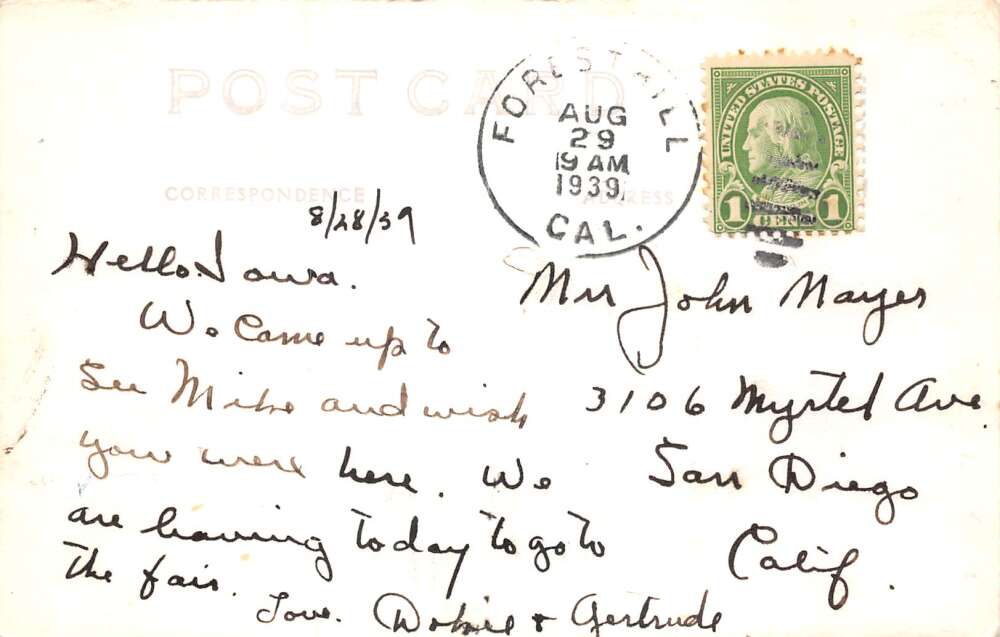 POST CARD
CORRESPONDENCE
ADDRESS
FOREST HILL
AUG
29
9 AM
1939
CAL.
UNITED STATES POSTAGE
1 CENT 1
8/28/39
Hello Iowa.
We came up to
See Mike and wish
you were here. We
are leaving today to go to
the fair.
Love. & Gertrude
Mrs John Nayes
3106 Myrtel Ave.
San Diego
Calif.